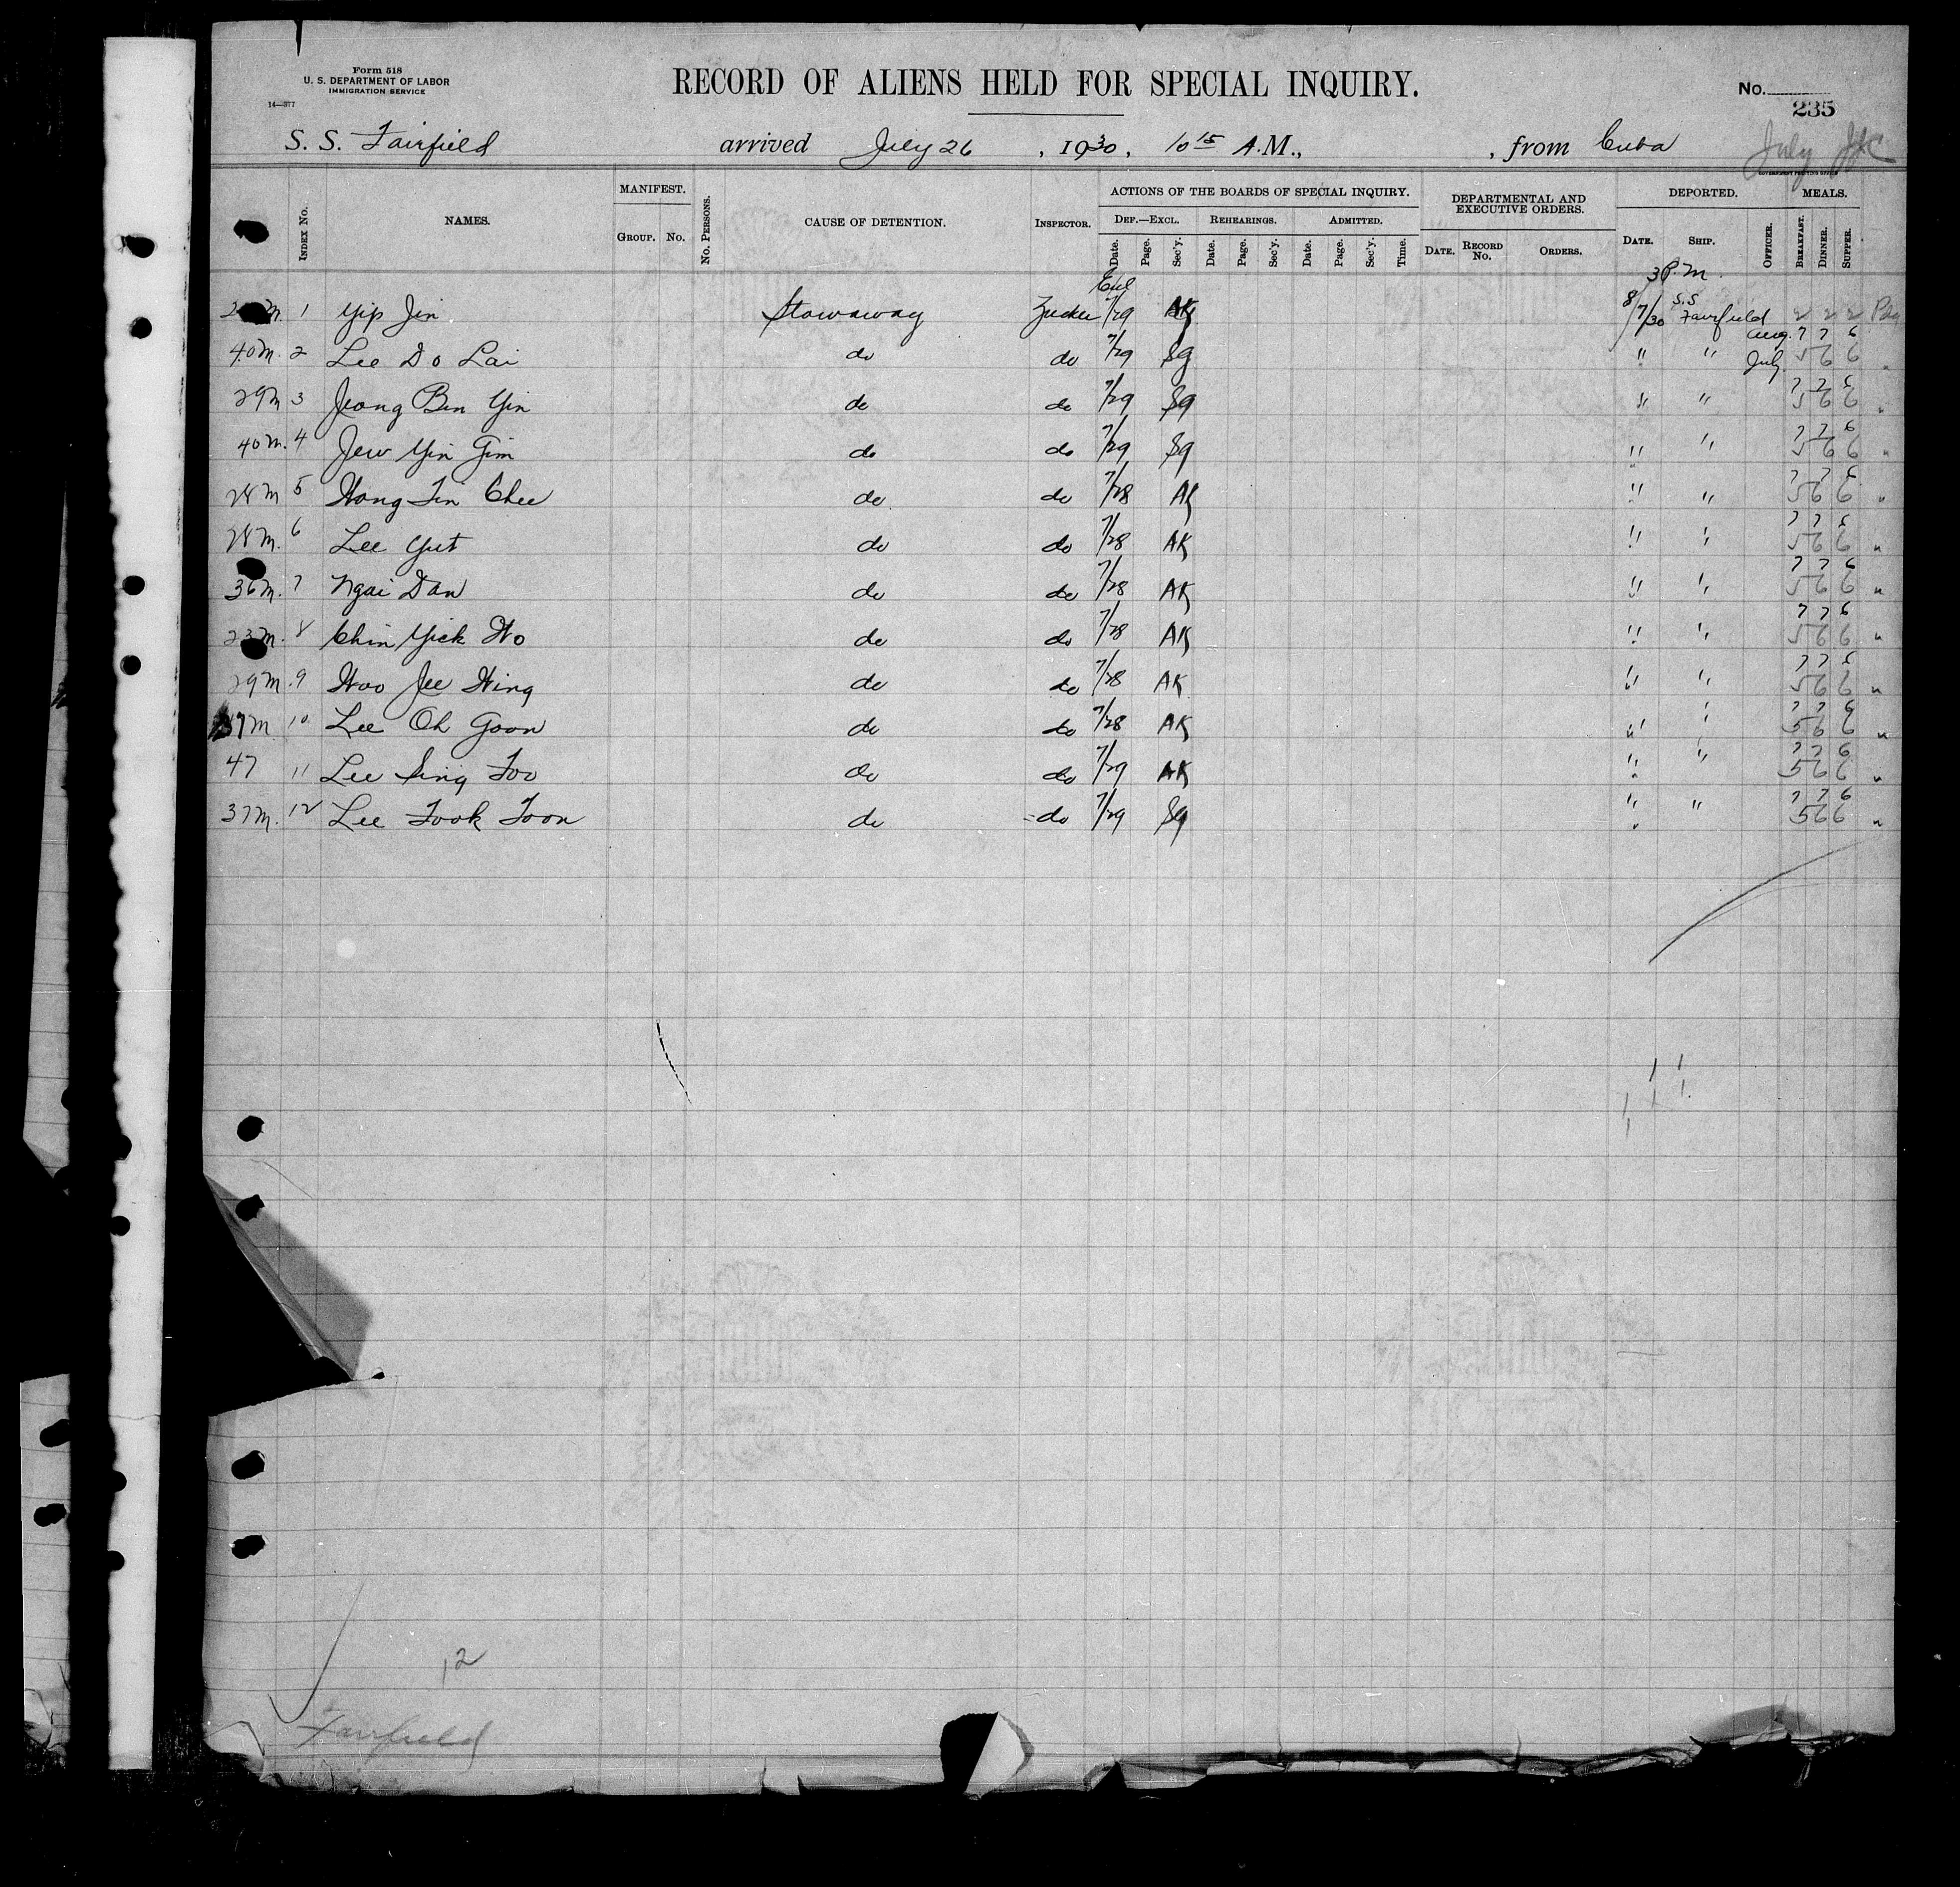 Form 518
U. S. DEPARTMENT OF LABOR
IMMIGRATION SERVICE
14—377
RECORD OF ALIENS HELD FOR SPECIAL INQUIRY.
No.
235
S. S. Fairfield arrived July 26, 1930, 10 15 A.M., , from Cuba
July
GOVERNMENT PRINTING OFFICE
INDEX No. NAMES. MANIFEST. GROUP. No. No. PERSONS. CAUSE OF DETENTION. INSPECTOR. ACTIONS OF THE BOARDS OF SPECIAL INQUIRY. DEF.—EXCL. Date. Page. Sec'y. REHEARINGS. Date. Page. Sec'y. ADMITTED. Date. Page. Sec'y. Time. DEPARTMENTAL AND EXECUTIVE ORDERS. DATE. RECORD No. ORDERS. DEPORTED. DATE. SHIP. OFFICER. MEALS. BREAKFAST. DINNER. SUPPER.
3 P.M.
1 Yip Jin Stowaway Zucker 7/29 AK 8/7/30 S.S Fairfield 2 2 2
Aug. 7 7 6
40 M. 2 Lee Do Lai do do 7/29 Sg " " July 5 6 6 "
7 7 6
29 M 3 Jeong Bin Yin do do 7/29 Sg " " 5 6 6 "
7 7 6
40 M. 4 Jew Yin Gim do do 7/29 Sg " " 5 6 6 "
7 7 6
28 M 5 Wong Tin Chee do do 7/28 AK " " 5 6 6 "
7 7 6
28 M. 6 Lee Yut do do 7/28 AK " " 5 6 6 "
7 7 6
36 M. 7 Ngai Dan do do 7/28 AK " " 5 6 6 "
7 7 6
23 M. 8 Chin Yick Wo do do 7/28 AK " " 5 6 6 "
7 7 6
29 M. 9 Woo Jee Wing do do 7/28 AK " " 5 6 6 "
7 7 6
M 10 Lee Oh Goon do do 7/28 AK " " 5 6 6 "
7 7 6
47 11 Lee Sing Foo do do 7/29 AK " " 5 6 6 "
7 7 6
37 M. 12 Lee Fook Foon do do 7/29 Sg " " 5 6 6 "
12
Fairfield